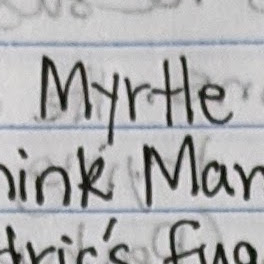 Myrtle
hink Mar
tric's fug